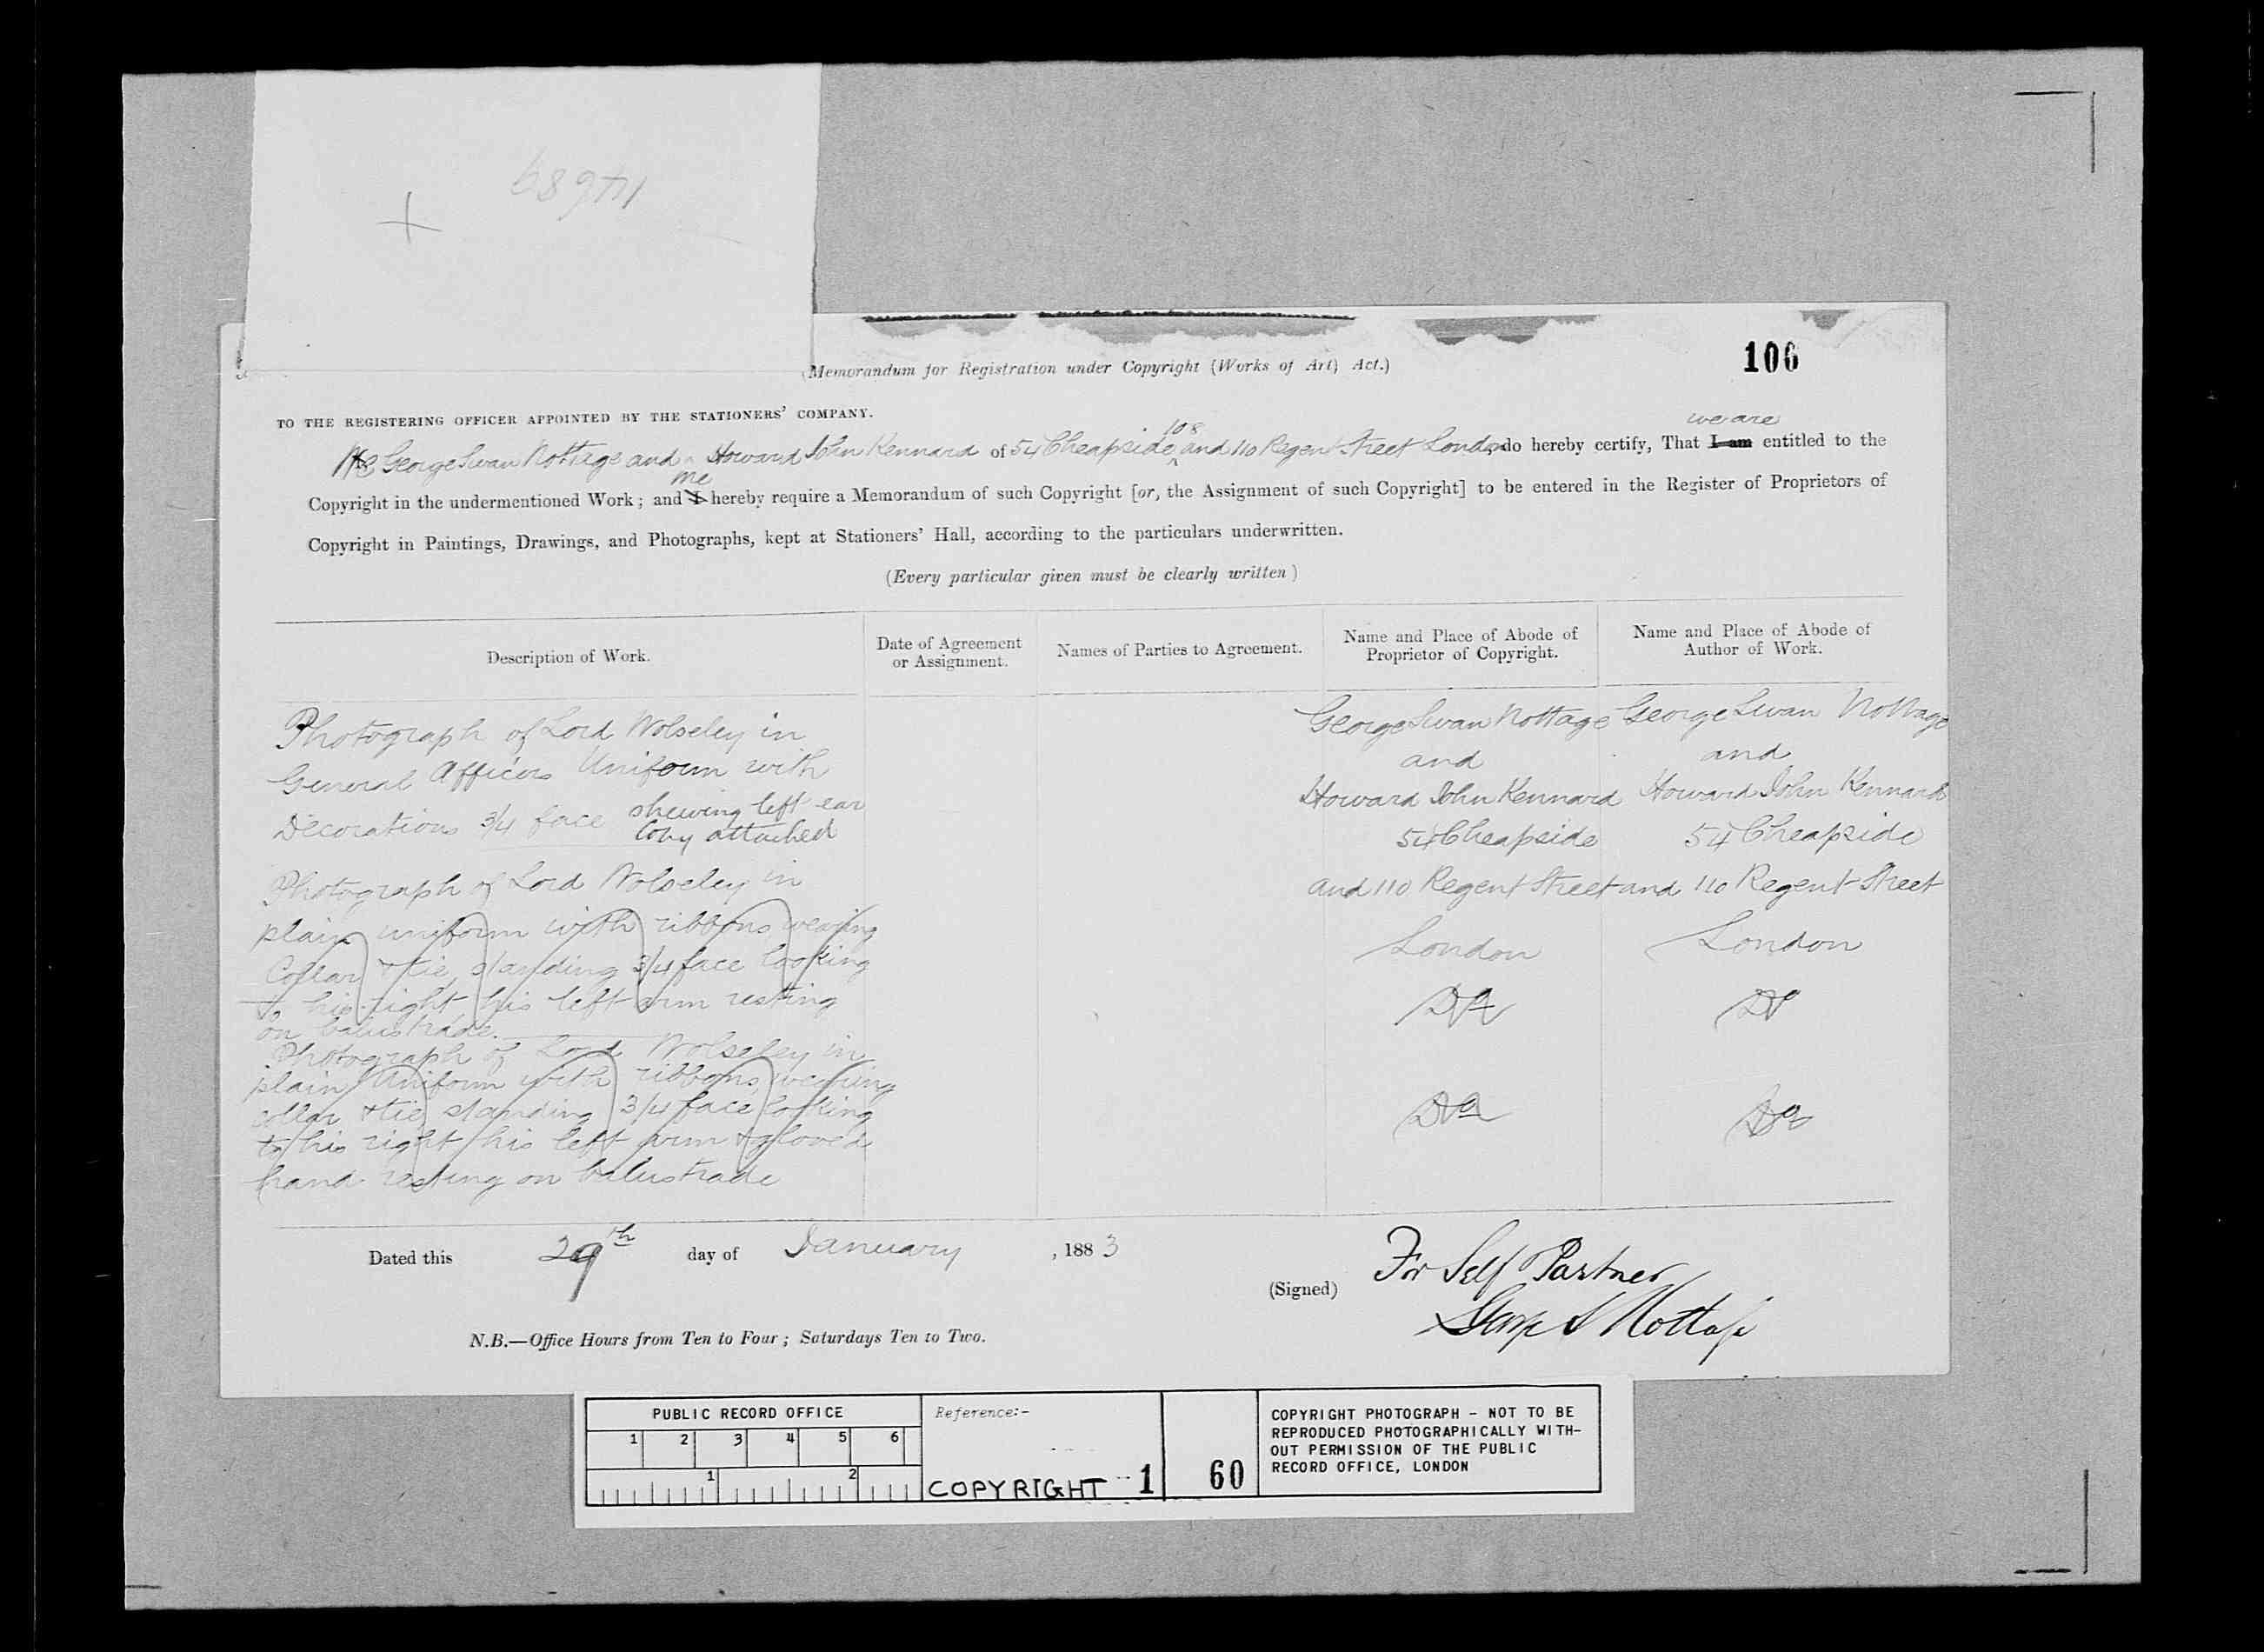 14689
106
(Memorandum for Registration under Copyright (Works of Art) Act.)
TO THE REGISTERING OFFICER APPOINTED BY THE STATIONERS' COMPANY.
We George Swan Nottage and Howard John Kennard of 54 Cheapside 108 and 110 Regent Street London do hereby certify, That I am we are entitled to the
Copyright in the undermentioned Work; and I we hereby require a Memorandum of such Copyright [or, the Assignment of such Copyright] to be entered in the Register of Proprietors of
Copyright in Paintings, Drawings, and Photographs, kept at Stationers' Hall, according to the particulars underwritten.
(Every particular given must be clearly written)
Description of Work.
Date of Agreement
or Assignment.
Names of Parties to Agreement.
Name and Place of Abode of
Proprietor of Copyright.
Name and Place of Abode of
Author of Work.
Photograph of Lord Wolseley in
General Officers Uniform with
Decorations 3/4 face shewing left ear
Copy attached
Photograph of Lord Wolseley in
plain uniform with ribbons wearing
Collar & tie standing 3/4 face looking
to his right his left arm resting
on balustrade.
Photograph of Lord Wolseley in
plain Uniform with ribbons wearing
collar & tie standing 3/4 face looking
to his right his left arm & gloved
hand resting on balustrade
George Swan Nottage
and
Howard John Kennard
54 Cheapside
and 110 Regent Street
London
Do
Do
George Swan Nottage
and
Howard John Kennard
54 Cheapside
and 110 Regent Street
London
Do
Do
Dated this 29th day of January, 1883
(Signed) For Self & Partner
George S Nottage
N.B.—Office Hours from Ten to Four; Saturdays Ten to Two.
PUBLIC RECORD OFFICE
1 2 3 4 5 6
1 2
Reference:-
COPYRIGHT 1
60
COPYRIGHT PHOTOGRAPH - NOT TO BE
REPRODUCED PHOTOGRAPHICALLY WITH-
OUT PERMISSION OF THE PUBLIC
RECORD OFFICE, LONDON